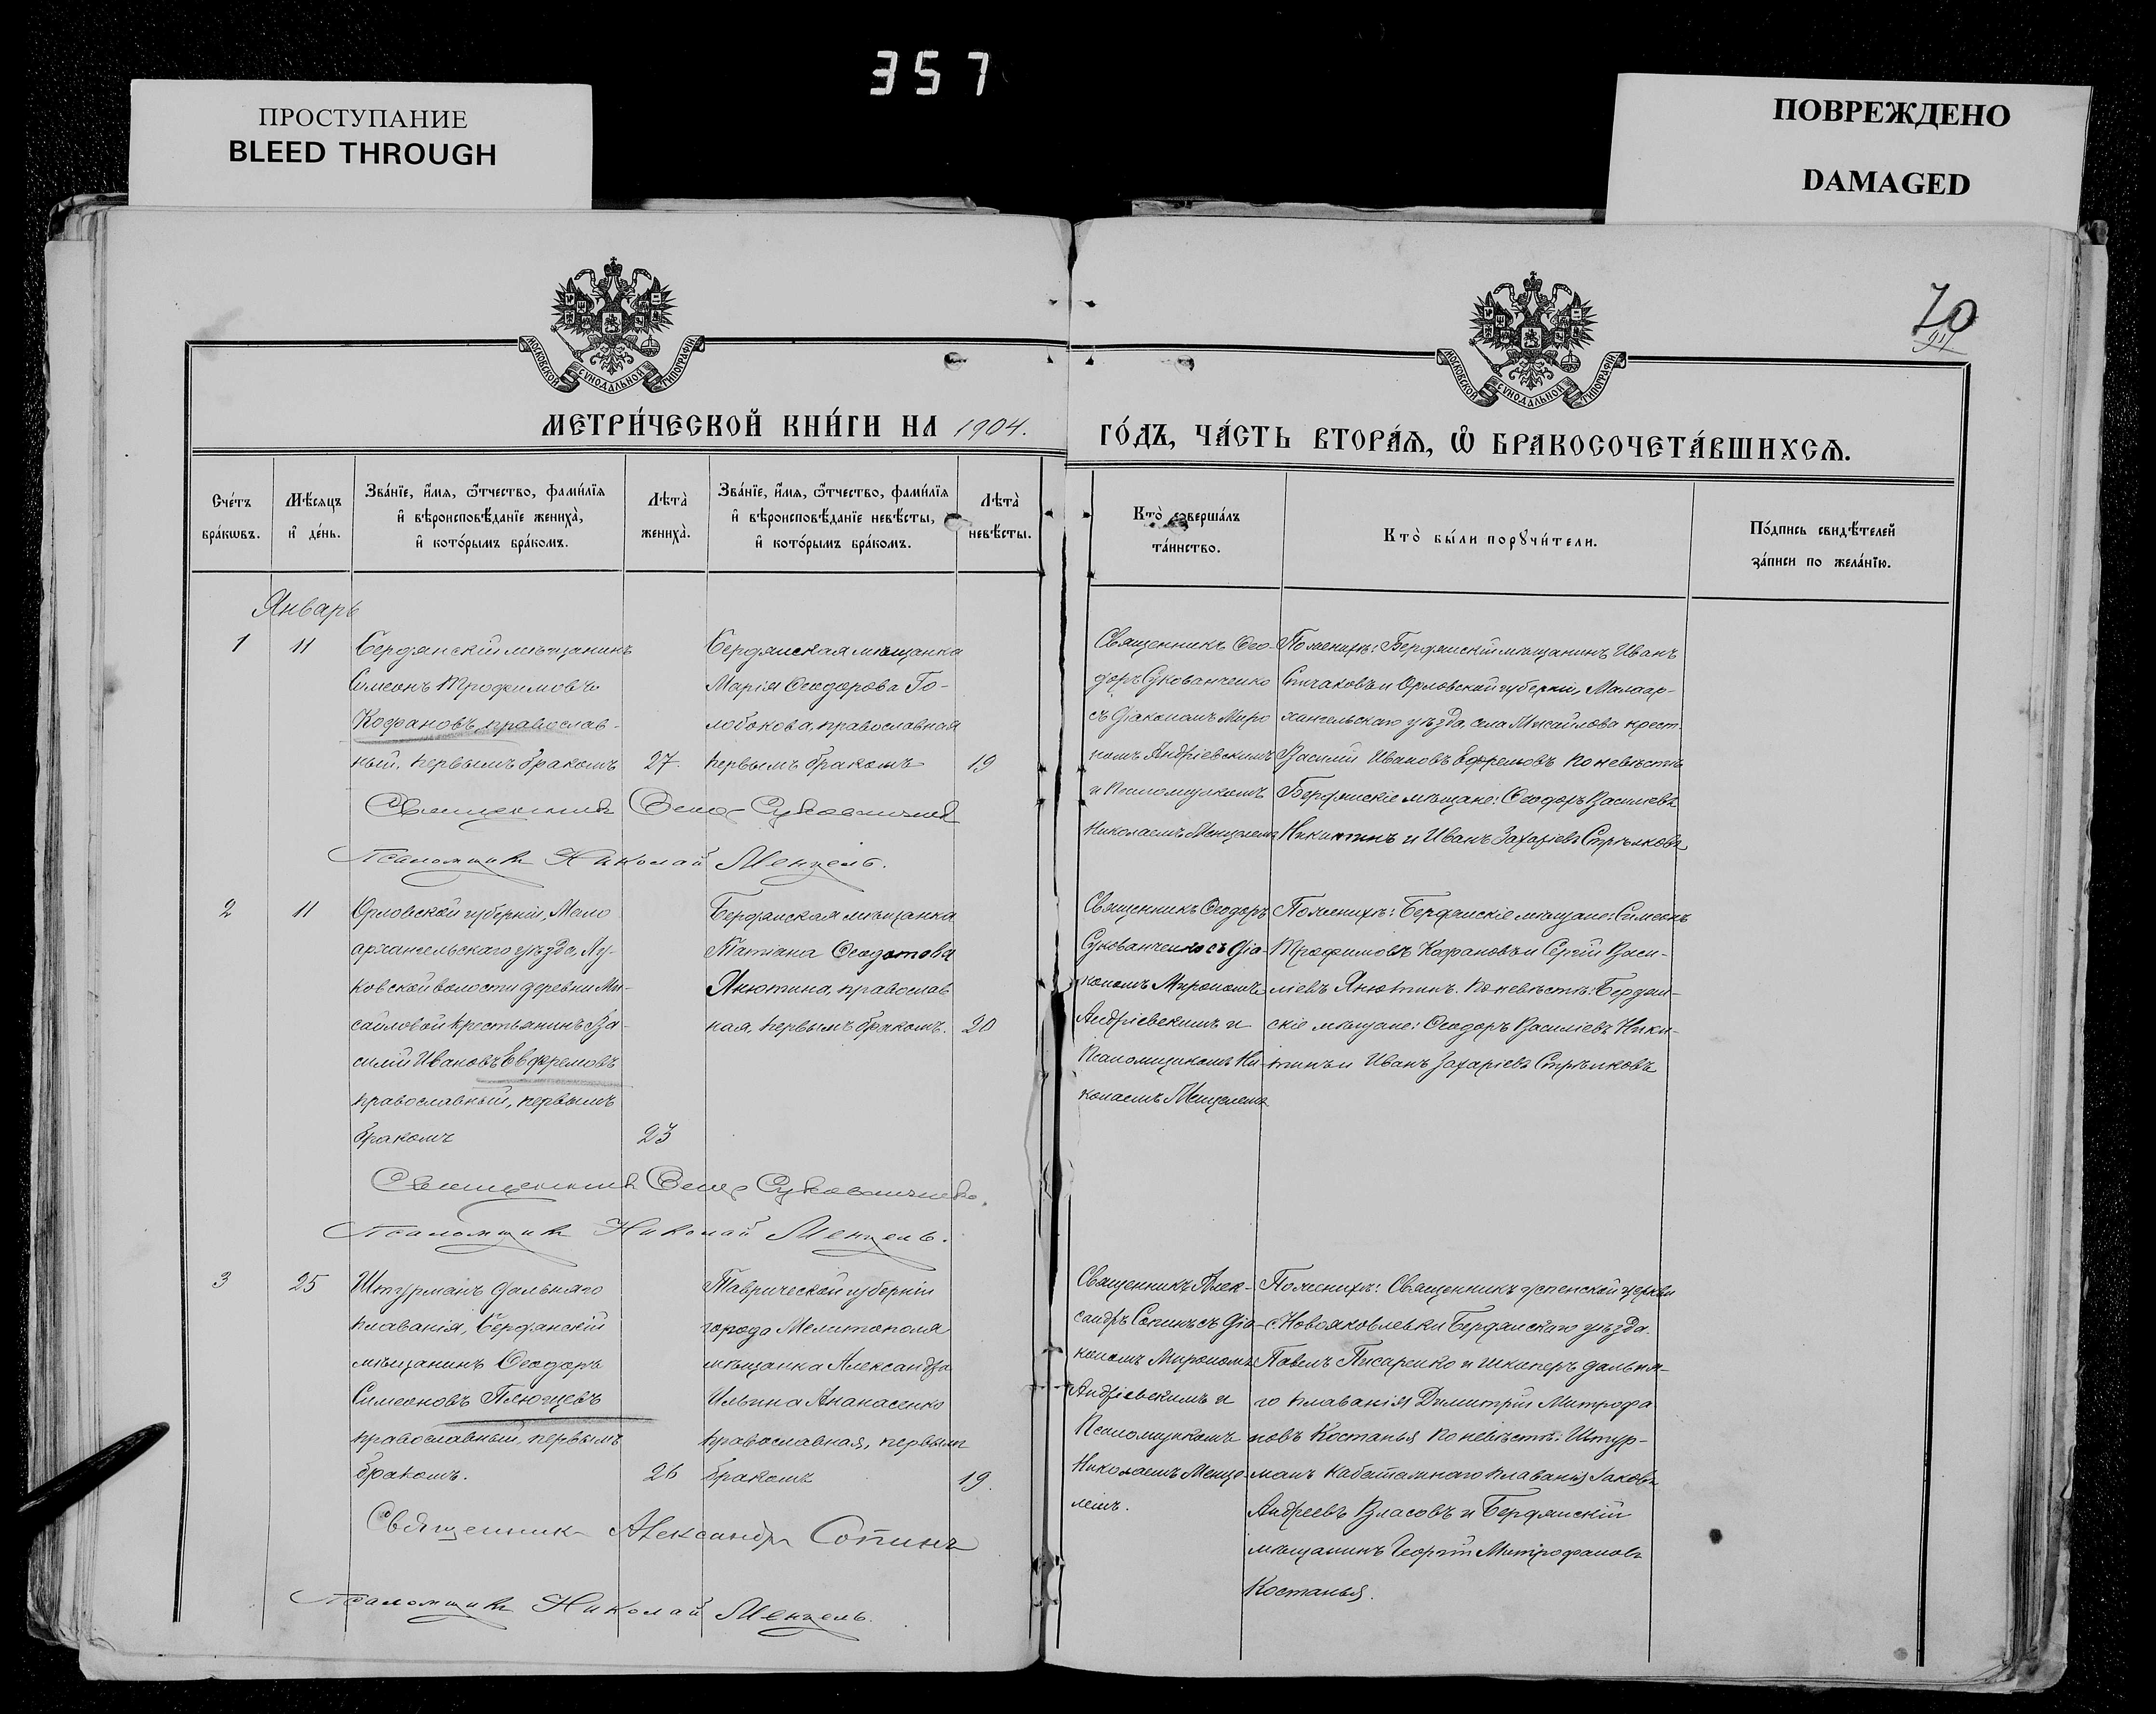 357
ПРОСТУПАНИЕ
BLEED THROUGH
ПОВРЕЖДЕНО
DAMAGED
70
МОСКОВСКОЙ СѴНОДАЛЬНОЙ ТИПОГРАФІИ
МОСКОВСКОЙ СѴНОДАЛЬНОЙ ТИПОГРАФІИ
МЕТРИ́ЧЕСКОЙ КНИ́ГИ НА 1904.
ГО́ДЪ, ЧА́СТЬ ВТОРА́Ѧ, Ѽ БРАКОСОЧЕТА́ВШИХСѦ.
Сче́тъ
бра́кѡвъ.
Мѣ́сяцъ
и҆ де́нь.
Зва́нїе, и҆́мѧ, ѻ҆́тчество, фамі́лїѧ
и҆ вѣроисповѣ́данїе жениха̀,
и҆ кото́рымъ бра́комъ.
Лѣта̀
жениха̀.
Зва́нїе, и҆́мѧ, ѻ҆́тчество, фамі́лїѧ
и҆ вѣроисповѣ́данїе невѣ́сты,
и҆ кото́рымъ бра́комъ.
Лѣта̀
невѣ́сты.
Кто̀ соверша́лъ
та́инство.
Кто̀ бы́ли порꙋчи́тели.
По́дпись свидѣ́телей
за́писи по жела́нїю.
Январь
1
11
Бердянскій мѣщанинъ
Симеонъ Трофимовъ
Кофановъ, православ-
ный, первымъ бракомъ
27.
Бердянская мѣщанка
Марія Ѳеодорова Го-
лобокова, православная
первымъ бракомъ
19
Священникъ Ѳео-
доръ Сукованченко
съ діакономъ Миро
номъ Андріевскимъ
и Псаломщикомъ
Николаемъ Менцелемъ
По женихѣ: Бердянскій мѣщанинъ Иванъ
Спичаковъ и Орловской губерніи, Малоар-
хангельскаго уѣзда, села Мисайлова крест.
Василій Ивановъ Ефремовъ по невѣстѣ
Бердянскіе мѣщане: Ѳеодоръ Василіевъ
Никитинъ и Иванъ Захаріевъ Стрѣлковъ
Священникъ Ѳеод. Сукованченко
Псаломщикъ Николай Менцель.
2
11
Орловской губерніи, Мало
архангельскаго уѣзда, Лу-
ковской волости деревни Ми-
сайловой крестьянинъ Ва-
силій Ивановъ Евфремовъ
православный, первымъ
бракомъ
23
Бердянская мѣщанка
Татіана Ѳеодотова
Янютина, православ
ная, первымъ бракомъ.
20
Священникъ Ѳеодоръ
Сукованченко съ діа-
кономъ Мирономъ
Андріевскимъ и
Псаломщикомъ Ни-
колаемъ Менцелемъ
По женихѣ: Бердянскіе мѣщане: Симеонъ
Трофимовъ Кофановъ и Сергій Васи-
ліевъ Янютинъ. По невѣстѣ: Бердян-
скіе мѣщане: Ѳеодоръ Василіевъ Ники-
тинъ и Иванъ Захаріевъ Стрѣлковъ
Священникъ Ѳеод. Сукованченко.
Псаломщикъ Николай Менцель.
3
25
Штурманъ дальняго
плаванія, Бердянскій
мѣщанинъ Ѳеодоръ
Симеоновъ Плющевъ
православный, первымъ
бракомъ.
26
Таврической губерніи
города Мелитополя
мѣщанка Александра
Ильина Ананасенко
православная, первымъ
бракомъ
19.
Священникъ Алек-
сандръ Сопинъ съ діа-
кономъ Мирономъ
Андріевскимъ и
Псаломщикомъ
Николаемъ Менце-
лемъ.
По женихѣ: Священникъ успенской церкви
с. Новояковлевки Бердянскаго уѣзда.
Павелъ Писаренко и шкиперъ дальня-
го плаванія Димитрій Митрофа
новъ Костанья по невѣстѣ: Штур-
манъ каботажнаго плаванія Іаковъ
Андреевъ Власовъ и Бердянскій
мѣщанинъ Георгій Митрофановъ
Костанья.
Священникъ Александръ Сопинъ
Псаломщикъ Николай Менцель.